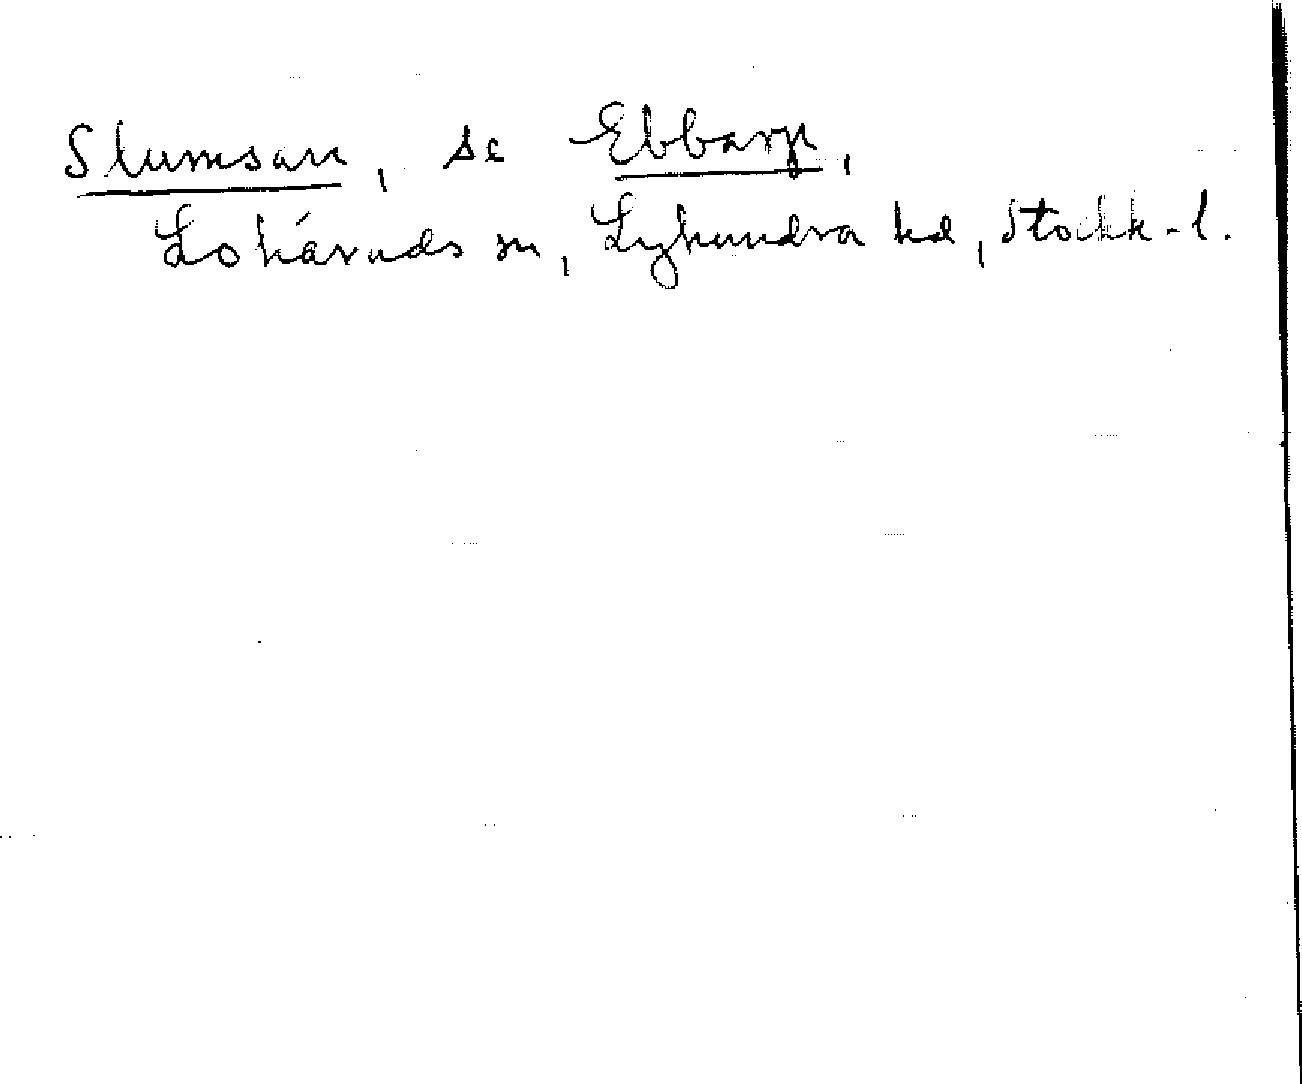 Slumsan, se Ebbarp,
Lohärads sn, Lyhundra hd, Stockh-l.